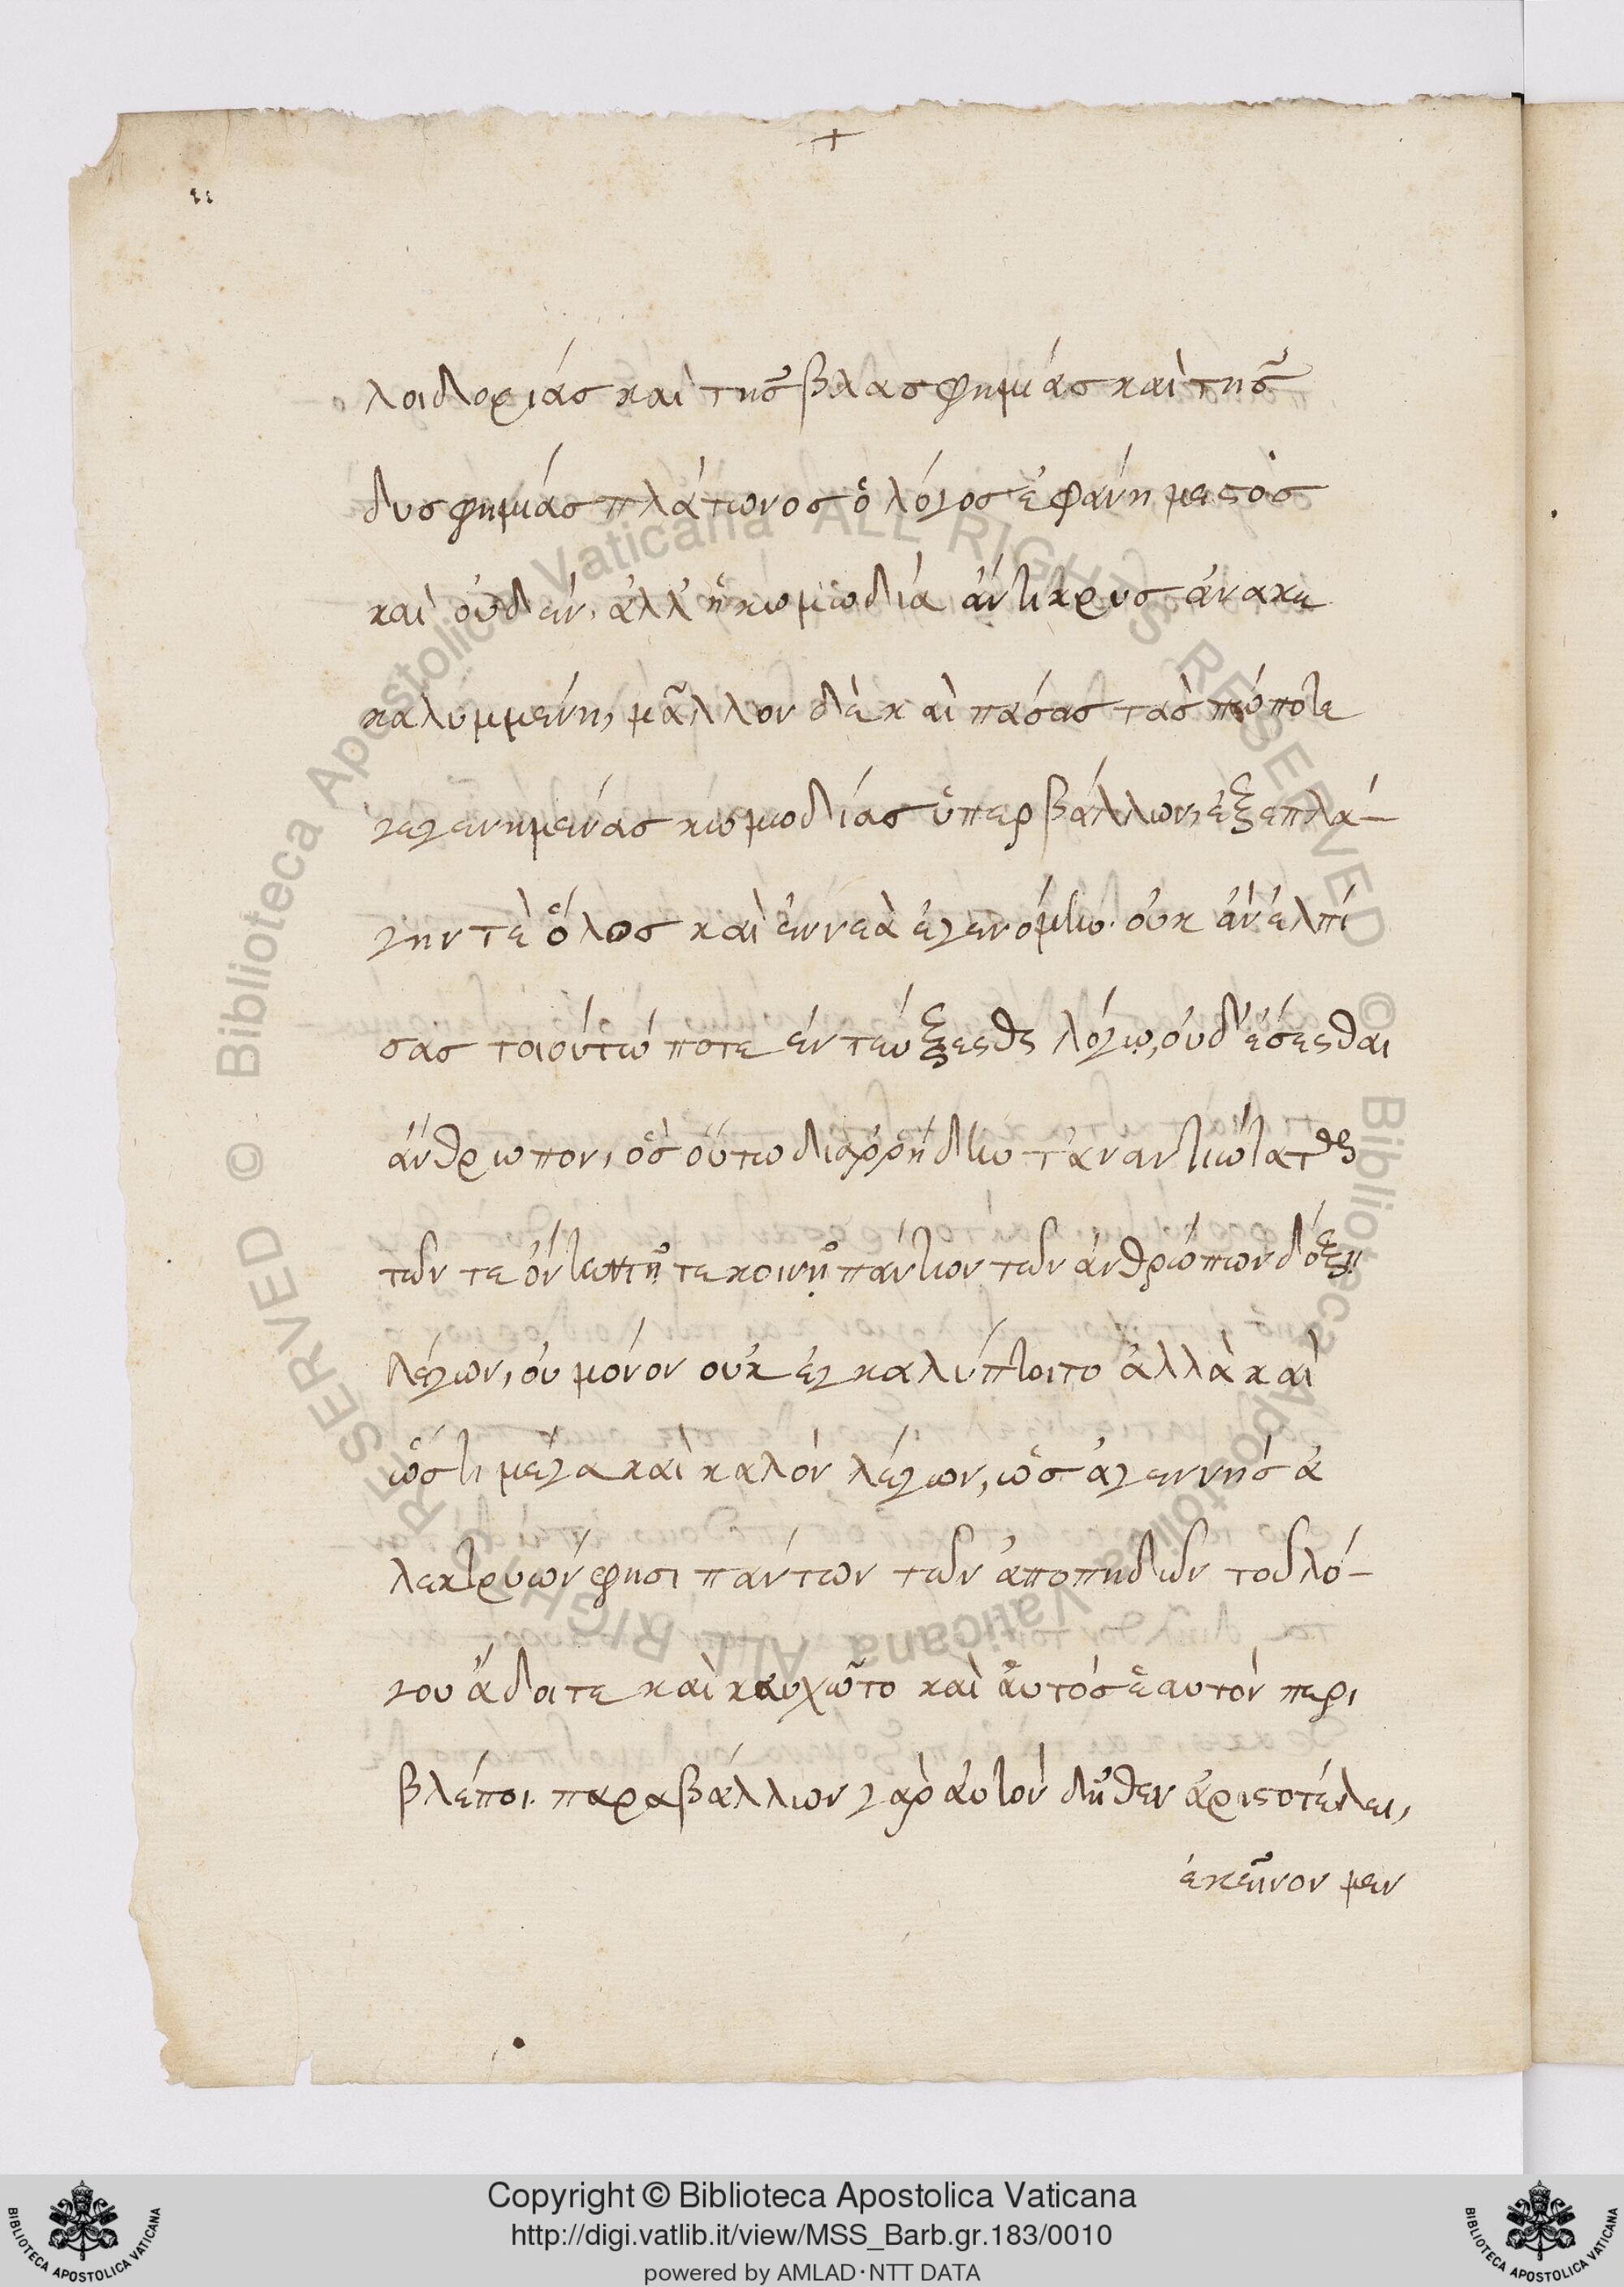 +
λοιδορίας καὶ τῆς βλασφημίας καὶ τῆς
δυσφημίας πλάτωνος ὁ λόγος ἐφάνη μεστὸς
καὶ οὐδὲν, ἀλλ' ἢ κωμωδία ἀντικρυς ἀνακε
καλυμμένη, μᾶλλον δὲ καὶ πάσας τὰς πώποτε
γεγενημένας κωμωδίας ὑπερβάλλων, ἐξεπλά-
γην τὲ ὅλος καὶ ἐννεὰ ἐγενόμην. οὐκ ἂν ἐλπί
σας τοιούτώ ποτε ἐντεύξεσθαι λόγῳ, οὐδ' ἔσεσθαι
ἄνθρωπον, ὃς οὕτω διαρρήδην τἀναντιώτατα
τῶν τε ὄντων τῆ τε κοινῆ πάντων τῶν ἀνθρώπων δόξῃ
λέγων, οὐ μόνον οὐκ ἐγκαλύπτοιτο ἀλλὰ καὶ
ὥς τι μέγα καὶ καλὸν λέγων, ὡς ἀγεννὴς ἀ
λεκτρυὼν φησι πάντων τῶν ἀποπηδῶν τοῦ λό-
γου ἄδοιτε καὶ καυχῶτο καὶ αὐτὸς ἑαυτὸν περι
βλέποι. παραβάλλων γὰρ αὐτὸν δῆθεν ἀριστοτέλει,
ἐκεῖνον μεν
Copyright © Biblioteca Apostolica Vaticana
http://digi.vatlib.it/view/MSS_Barb.gr.183/0010
powered by AMLAD·NTT DATA
BIBLIOTECA APOSTOLICA VATICANA
BIBLIOTECA APOSTOLICA VATICANA
© Biblioteca Apostolica Vaticana ALL RIGHTS RESERVED
© Biblioteca Apostolica Vaticana ALL RIGHTS RESERVED